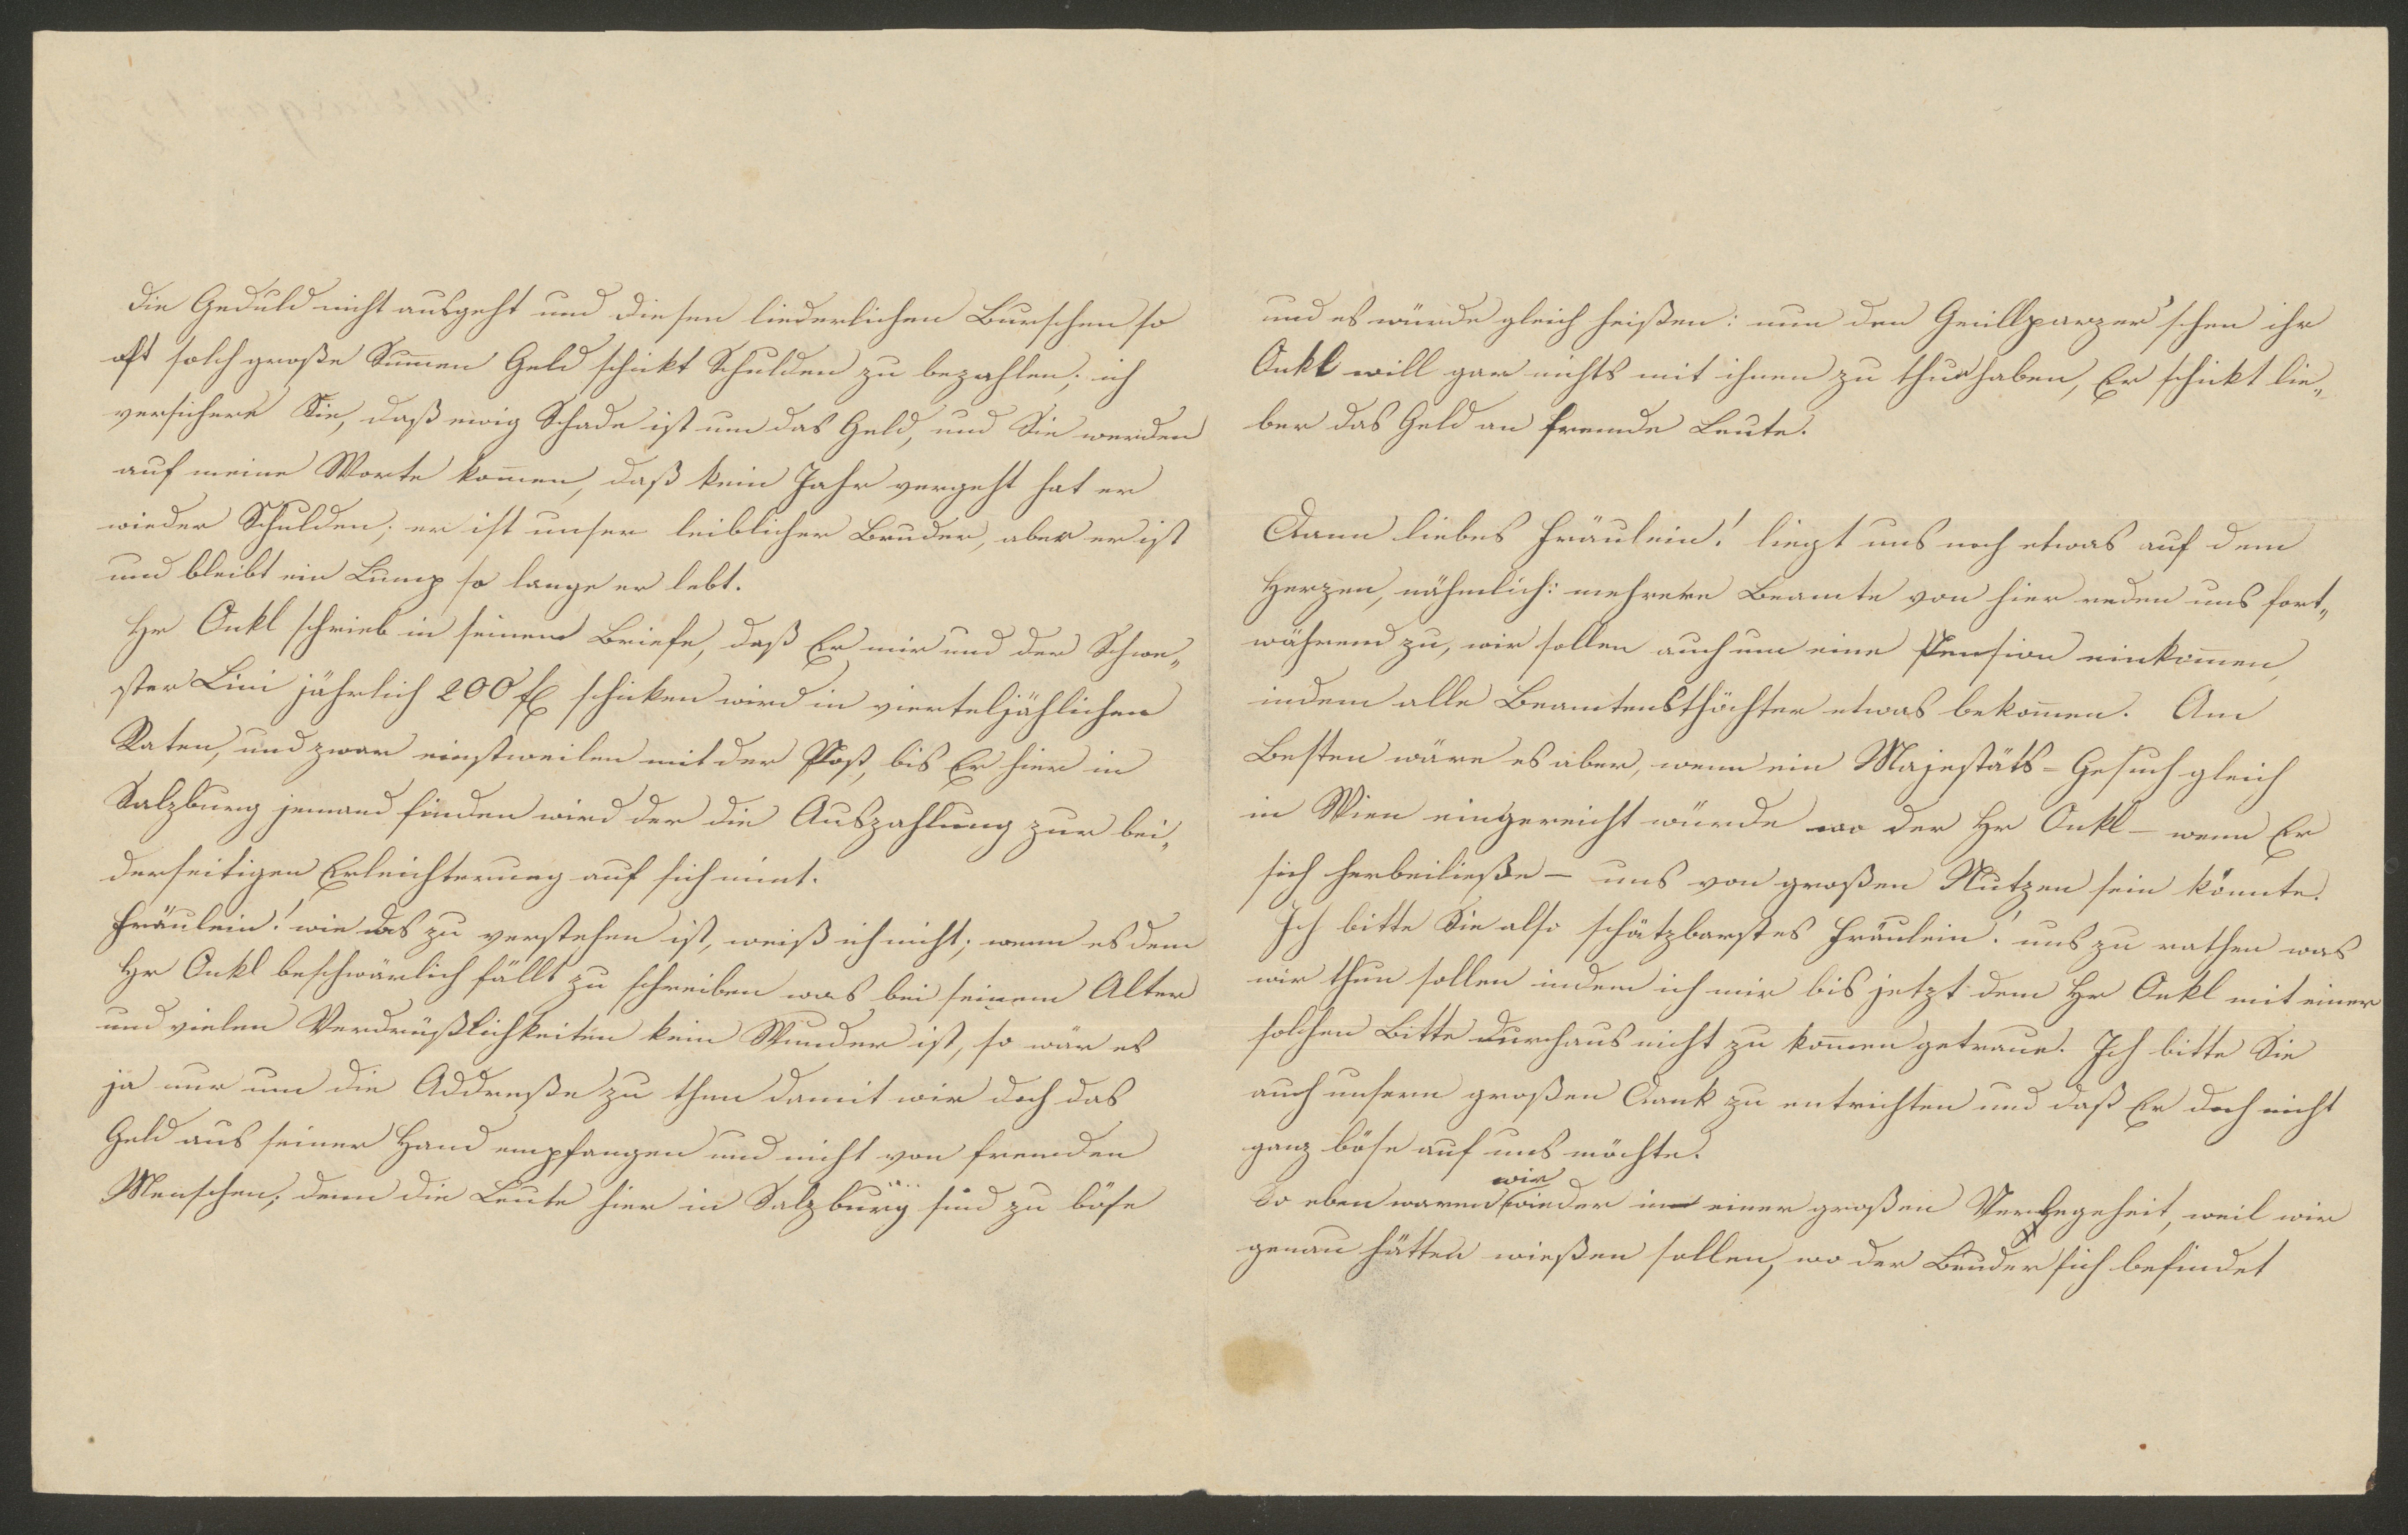 die Geduld nicht ausgeht und diesen liederlichen Burschen so
oft solch große Sum̅en Geld schickt Schulden zu bezahlen; ich
versichere Sie, daß ewig Schade ist um das Geld, und Sie werden
auf meine Worte kom̅en, daß kein Jahr vergeht hat er
wieder Schulden; er ist unser leiblicher Bruder, aber er ist
und bleibt ein Lump so lange er lebt.
Hr Onkl schrieb in seinem Briefe, daß Er mir und der Schwe„
ster Lini jährlich 200 fl schicken wird in vierteljählichen
Raten, und zwar einstweilen mit der Post, bis Er hier in
Salzburg jemand finden wird der die Auszahlung zur bei„
derseitigen Erleichterung auf sich nim̅t.
Fräulein! wie das zu verstehen ist, weiß ich nicht; wenn es dem
Hr Onkl beschwärlich fällt zu schreiben was bei seinem Alter
und vielen Verdrüßlichkeiten kein Wunder ist, so wär es
ja nur um die Addreße zu thun damit wir doch das
Geld aus seiner Hand empfangen und nicht von fremden
Menschen; denn die Leute hier in Salzburg sind zu böse
und es würde gleich heißen: nun den Grillparzer'schen ihr
Onkl will gar nichts mit ihnen zu thun haben, Er schickt lie„
ber das Geld an fremde Leute.
Dann liebes Fräulein! liegt uns noch etwas auf dem
Herzen, nähmlich: mehrere Beamte von hier reden uns fort„
während zu, wir sollen auch um eine Pension einkom̅en,
indem alle Beamtensthöchter etwas bekom̅en. Am
Besten wäre es aber, wenn ein Majestäts-Gesuch gleich
in Wien eingereicht würde wo der Hr Onkl – wenn Er
sich herbeiließe – uns von großen Nutzen sein könnte.
Ich bitte Sie also schätzbarstes Fräulein! uns zu rathen was
wir thun sollen indem ich mir bis jetzt dem Hr Onkl mit einer
solchen Bitte durchaus nicht zu kom̅en getraue. Ich bitte Sie
auch unsern großen Dank zu entrichten und daß Er doch nicht
ganz böse auf uns möchte.
wir
So eben waren wieder in einer großen Verlegeheit, weil wir
genau hätten wießen sollen, wo der Bruder sich befindet